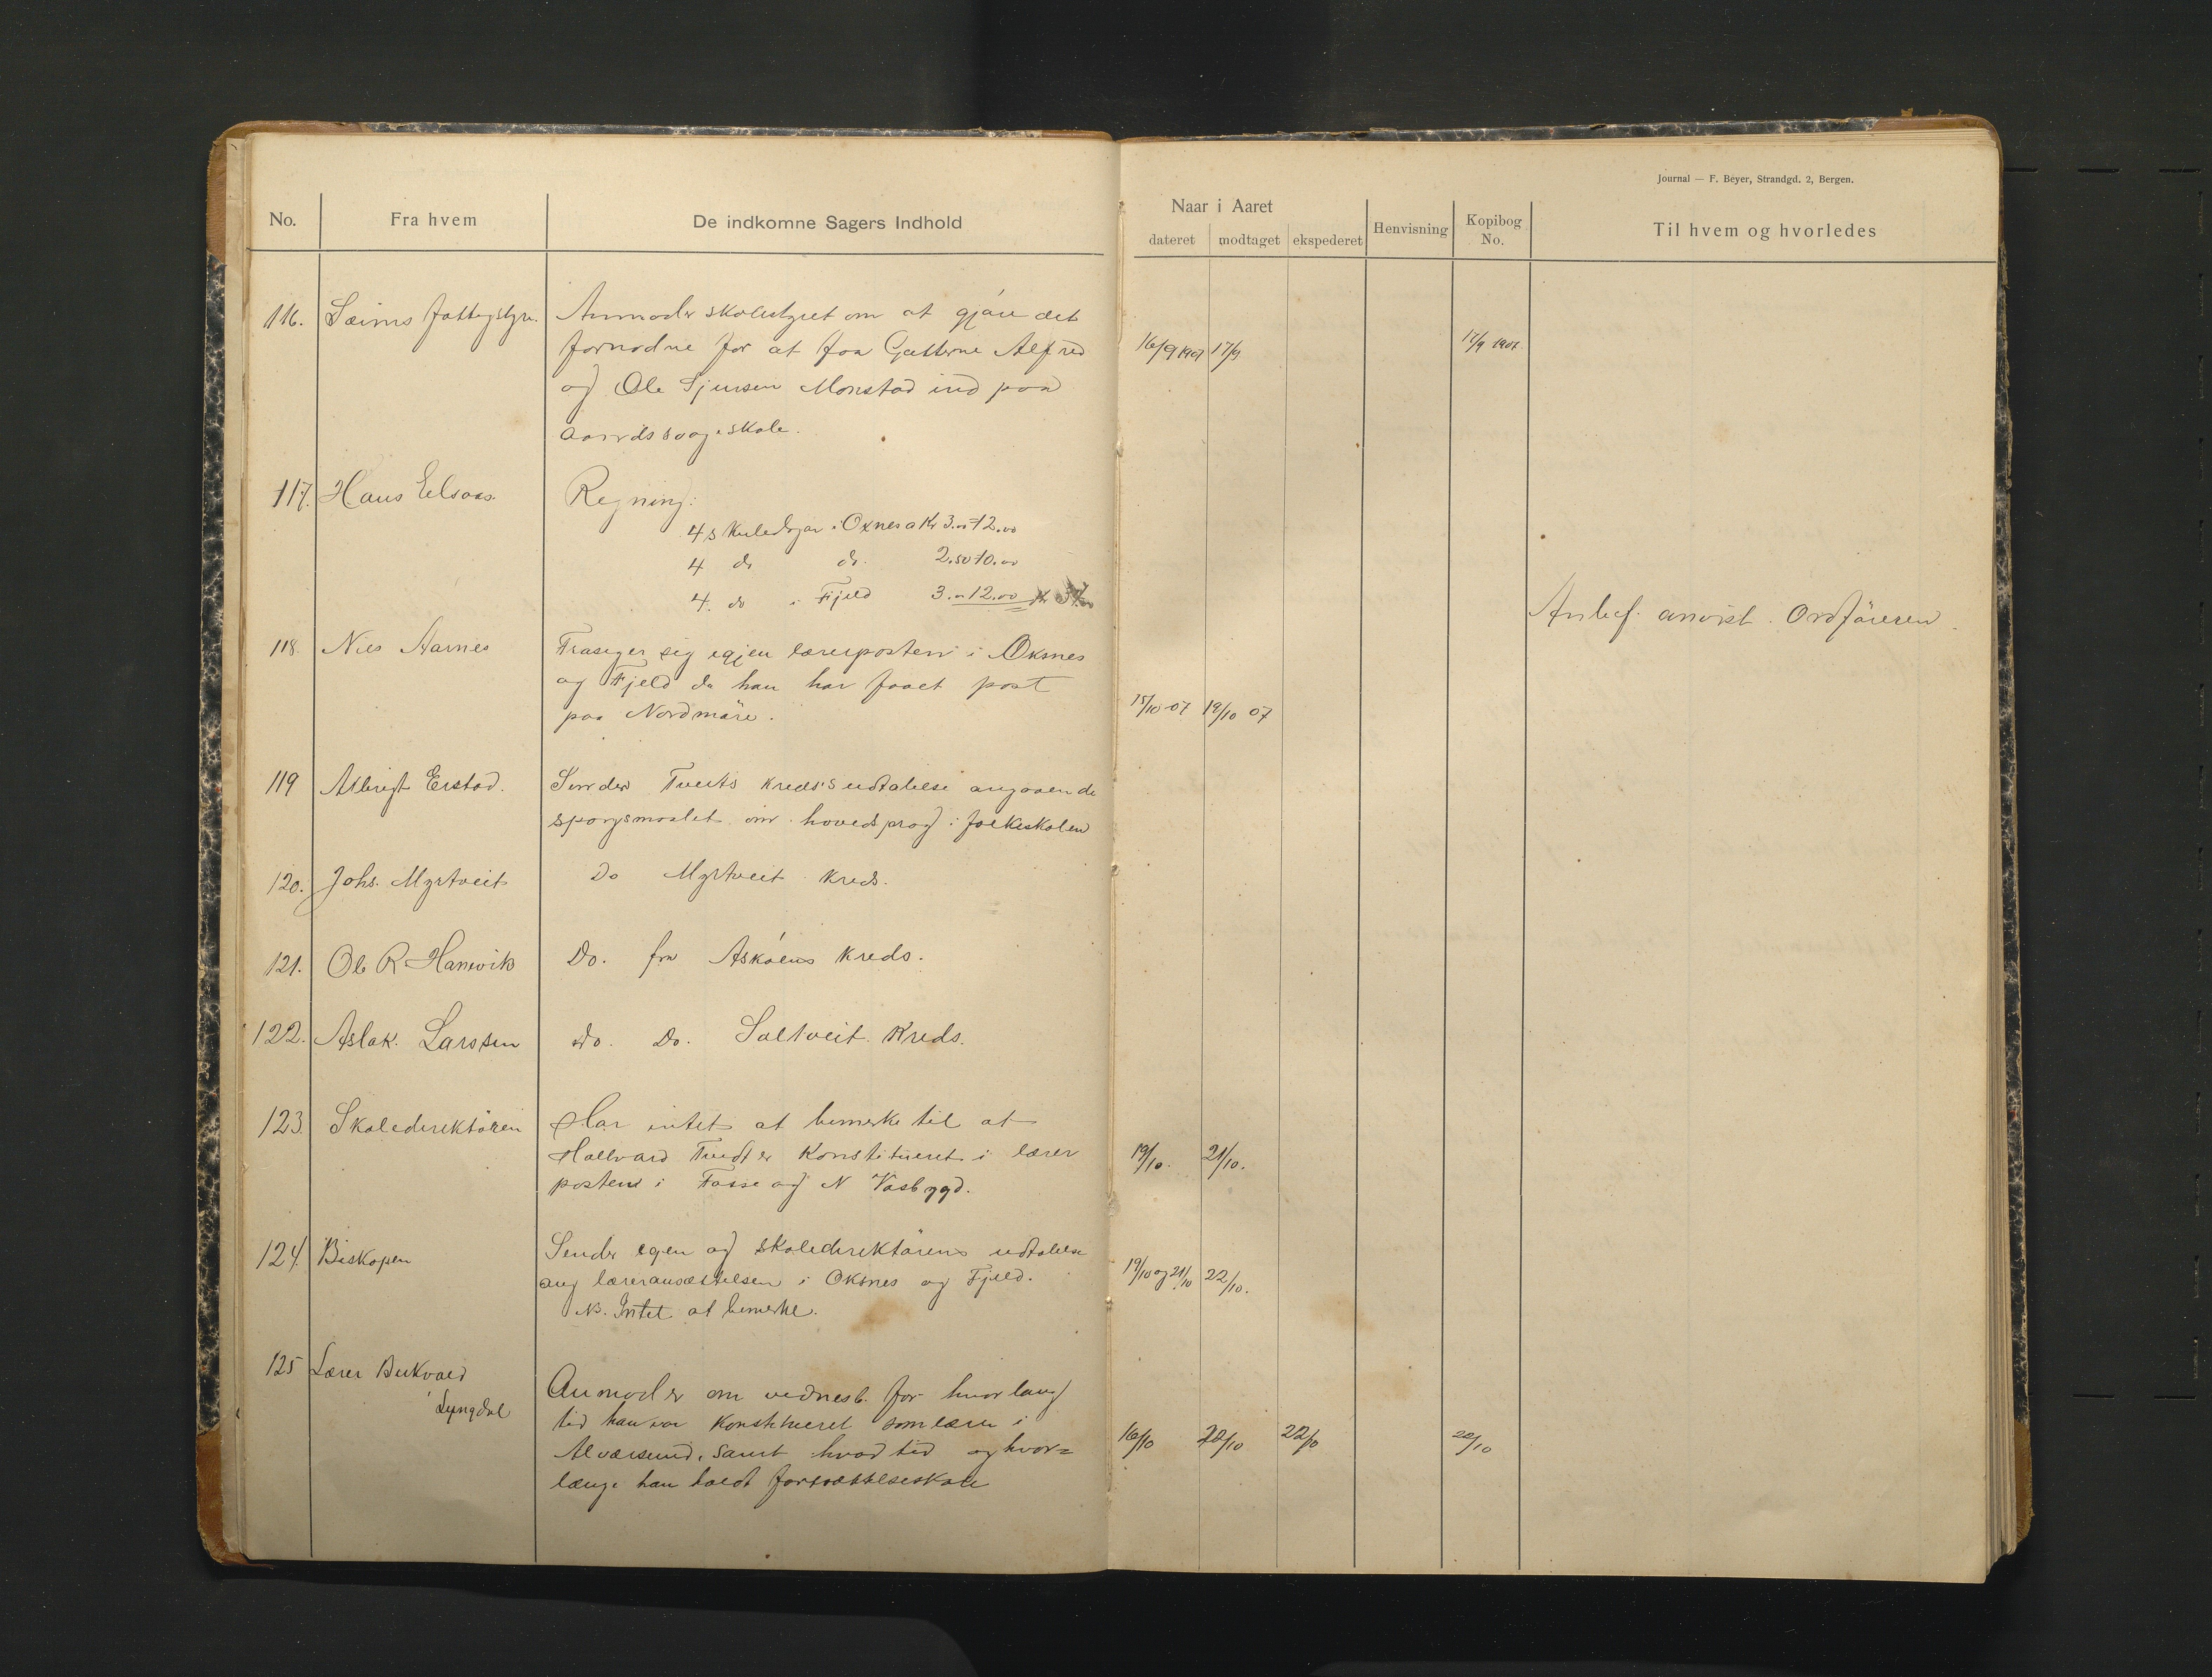 Journal — F. Beyer, Strandgd. 2, Bergen.
No. Fra hvem De indkomne Sagers Indhold
Naar i Aaret
dateret modtaget ekspederet Henvisning Kopibog No. Til hvem og hvorledes
116. Sæims fattigstyre. Anmoder skolestyret om at gjöre det
fornodne for at faa Gutterne Alfred 16/9 1907 17/9 17/9 1907.
og Ole Sjursen Monstad ind paa
skole.
117. Hans Eelsaas. Regning:
4 skuledagar i Oxnes a Kr 3.00 12.00
4 do do. 2.50 10.00
4. do i Fjeld 3.00 12.00 Kr
Anbef. anvist. Ordföreren.
118. Nils Aarnes Frasiger sig igjen lærerposten i Oksnes
og Fjeld da han har faaet post
paa Nordmöre. 15/10-07 19/10 07
119 Albrigt Erstad. Sender Tveits kreds's udtalelse angaaende
sporgsmaalet om hovedsprog i folkeskolen
120. Johs. Myrtveit Do Myrtveit kreds.
121. Ole R. Hanevik Do. fra Asköens kreds.
122. Aslak Larssen Do. Do. Soltveit Kreds.
123. Skoledirektören Har intet at bemerke til at
Hallvard er Konstitueret i lærer 19/10. 21/10.
posten i Fosse og N Vasbygd.
124. Biskopen Sender egen og skoledirektörens udtalelse
ang læreransættelsen i Oksnes og Fjeld. 19/10 og 21/10 22/10.
NB. Intet at bemerke.
125 Lærer
Lyngdal Anmoder om vidnesb. for hvor lang
tid han var Konstitueret som lærer i
Alværsund, samt hvad tid og hvor= 16/10 20/10 22/10 22/10
længe han holdt fortsættelseskole